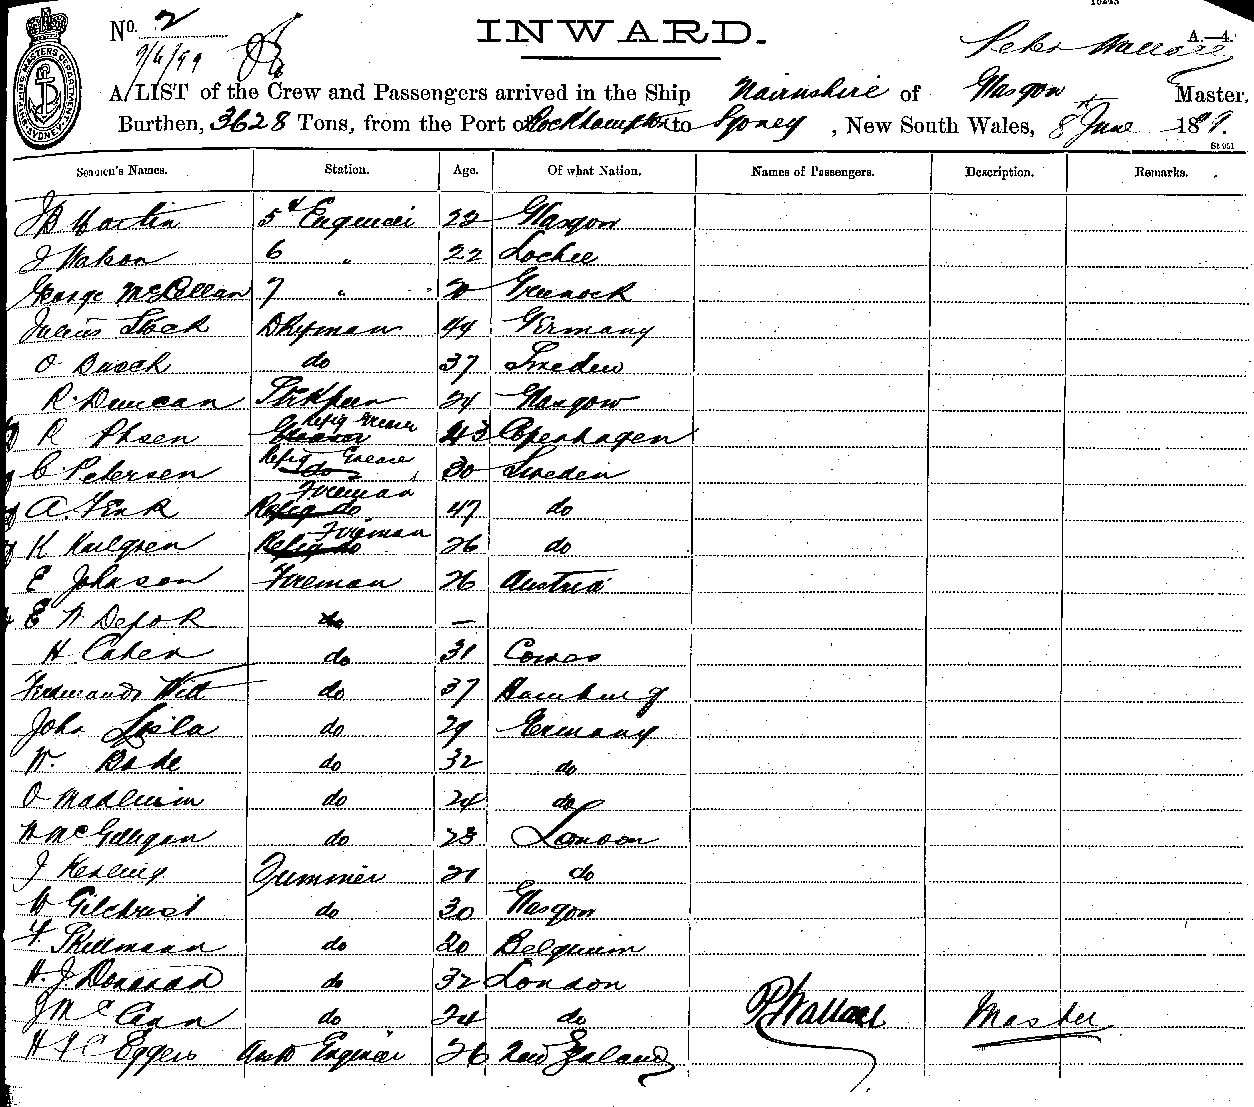 No. 2
INWARD.
A.—4.
9/6/99
Peter Wallace
A LIST of the Crew and Passengers arrived in the Ship Nairnshire of Glasgow Master,
Burthen, 3628 Tons, from the Port of Rockhampton to Sydney, New South Wales, 8th June 1899.
Seamen's Names. Station. Age. Of what Nation. Names of Passengers. Description. Remarks.
J B Martin 5th Engineer 22 Glasgow
J Watson 6 " 22 Lochee
George McLellan 7 " 20 Greenock
Julius Stack Dkyman 44 Germany
O Busch do 37 Sweden
R. Duncan Strkpur 24 Glasgow
R Olsen Refrig Greaser 43 Copenhagen
C Petersen Refrig Greaser 30 Sweden
A. Fink Fireman 47 do
K Karlgren Fireman 26 do
E Johnson Fireman 26 Austria
E W Defok do —
H Cahen do 31 Cowes
Ferdinands Witt do 37 Hamburg
John do 29 Germany
W. Bode do 32 do
O do 24 do
W McGilligan do 23 London
J Trimmer 21 do
W Gilchrist do 30 Glasgow
F Skillmann do 20 Belguim
H. J Donovan do 32 London
J McCann do 24 do
P Wallace Master
H J C Eggers Asst Engineer 26 New Zealand